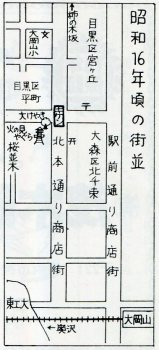 昭和16年頃の街並
柿の木坂
大岡山小
目黒区宮ヶ丘
目黒区平町
大けやき
火の見やぐら
桜並木
北本通り商店街
大森区北千束
駅前通り商店街
東工大
大岡山
←奥沢